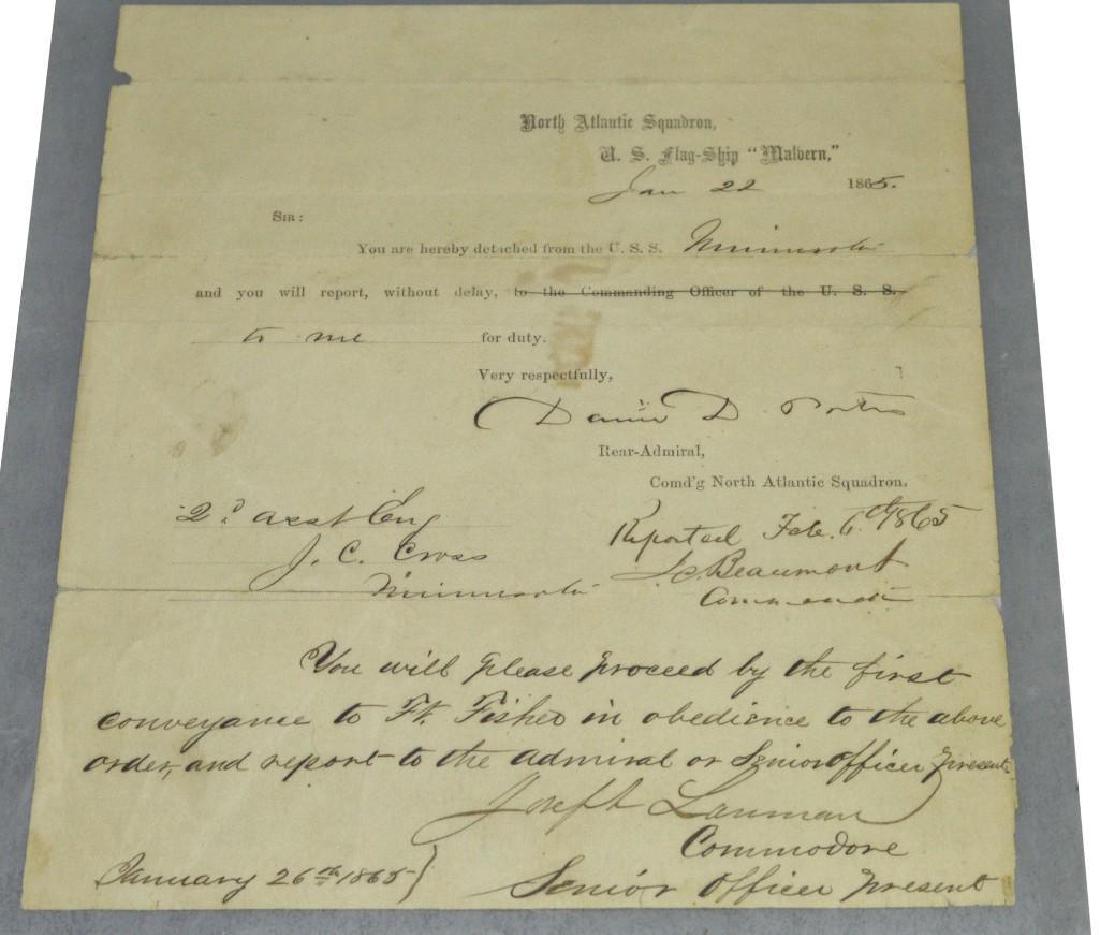 North Atlantic Squadron,
U. S. Flag-Ship "Malvern,"
Jan 22 1865.
SIR:
You are hereby detached from the U. S. S. Minnesota
and you will report, without delay, to the Commanding Officer of the U. S. S.
to me for duty.
Very respectfully,
David D. Porter
Rear-Admiral,
Comd'g North Atlantic Squadron.
2d Asst Eng
J. C. Cross
Minnesota
Reported Feb. 6th 1865
J. C. Beaumont
Commander
You will please proceed by the first
conveyance to Ft. Fisher in obedience to the above
order, and report to the Admiral or Senior officer present
Joseph Lanman
Commodore
Senior Officer Present
January 26th 1865